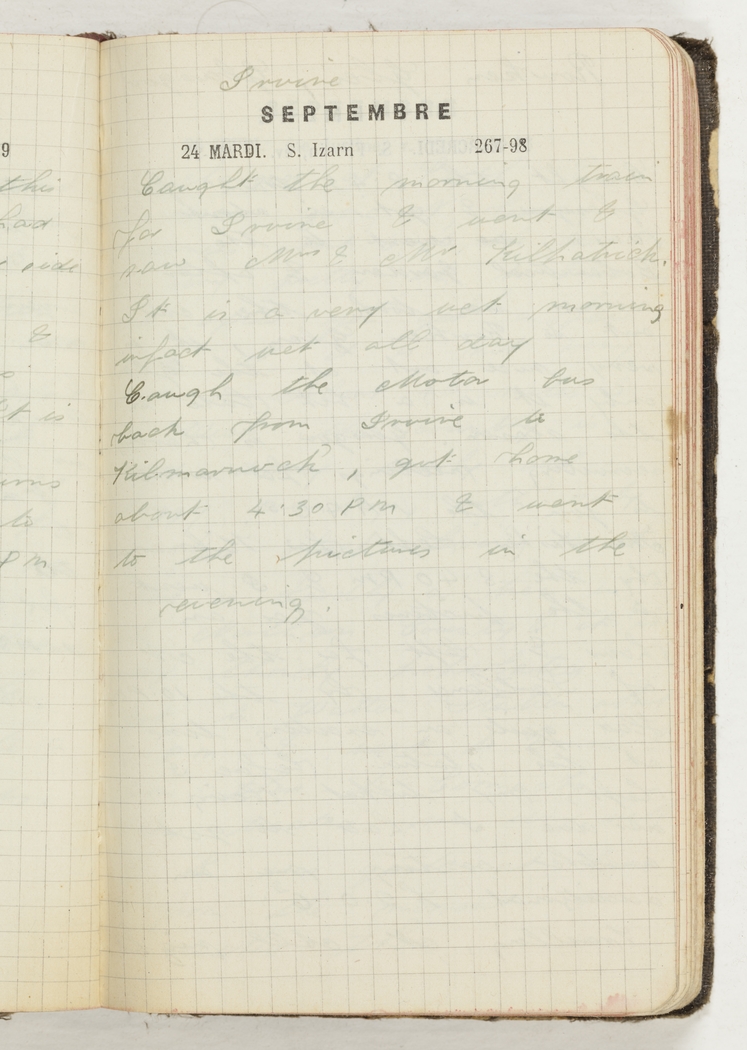 Irvine
SEPTEMBRE
24 MARDI. S. Izarn 267-98
Caught the morning train
for Irvine & went &
saw Mrs & Mr Kilpatrick.
It is a very wet morning
infact wet all day
Caugh the Motor bus
back from Irvine to
Kilmarnock, got home
about 4.30 PM & went
to the pictures in the
evening.
9
this
had
side
&
It is
to
PM